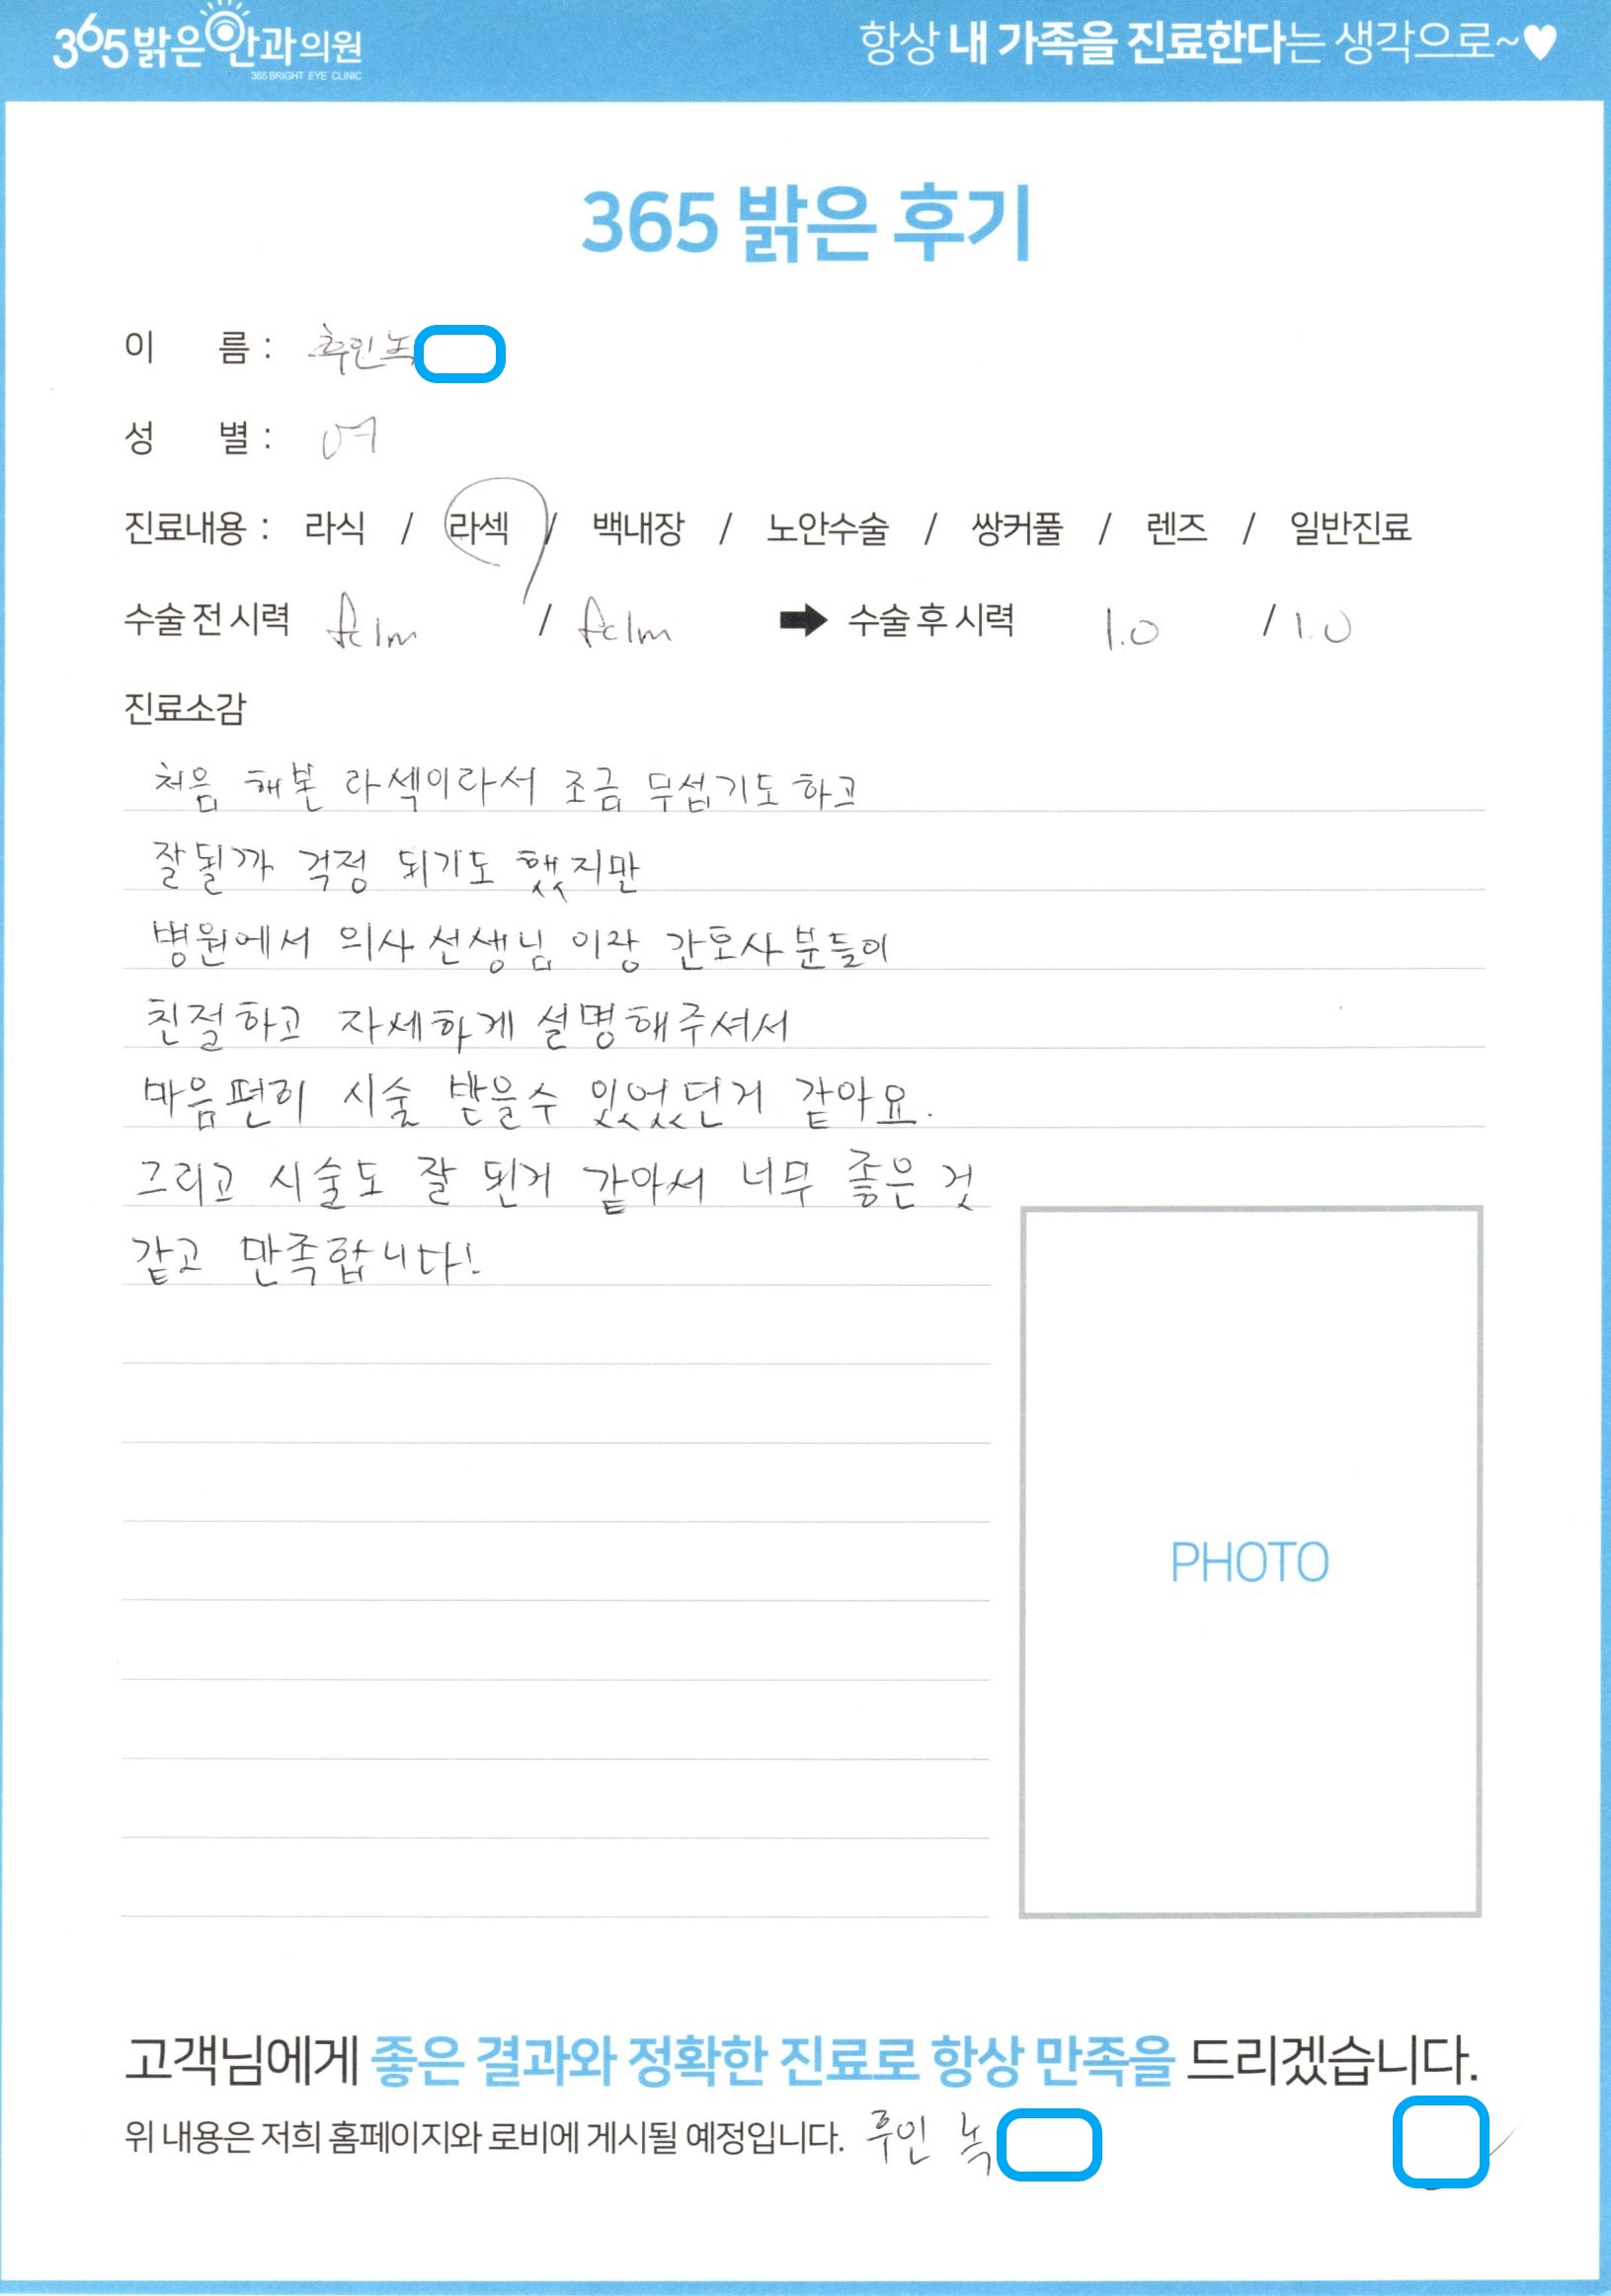 365밝은안과의원
365 BRIGHT EYE CLINIC
항상 내 가족을 진료한다는 생각으로~♥
365 밝은 후기
이 름 : 후인녹
성 별 : 여
진료내용 : 라식 / 라섹 / 백내장 / 노안수술 / 쌍커풀 / 렌즈 / 일반진료
수술 전 시력 fc1m / fc1m ➡ 수술 후 시력 1.0 / 1.0
진료소감
처음 해본 라섹이라서 조금 무섭기도 하고
잘될까 걱정 되기도 했지만
병원에서 의사선생님이랑 간호사분들이
친절하고 자세하게 설명해주셔서
마음편히 시술 받을수 있었던거 같아요.
그리고 시술도 잘 된거 같아서 너무 좋은 것
같고 만족합니다!
PHOTO
고객님에게 좋은 결과와 정확한 진료로 항상 만족을 드리겠습니다.
위 내용은 저희 홈페이지와 로비에 게시될 예정입니다. 후인 녹